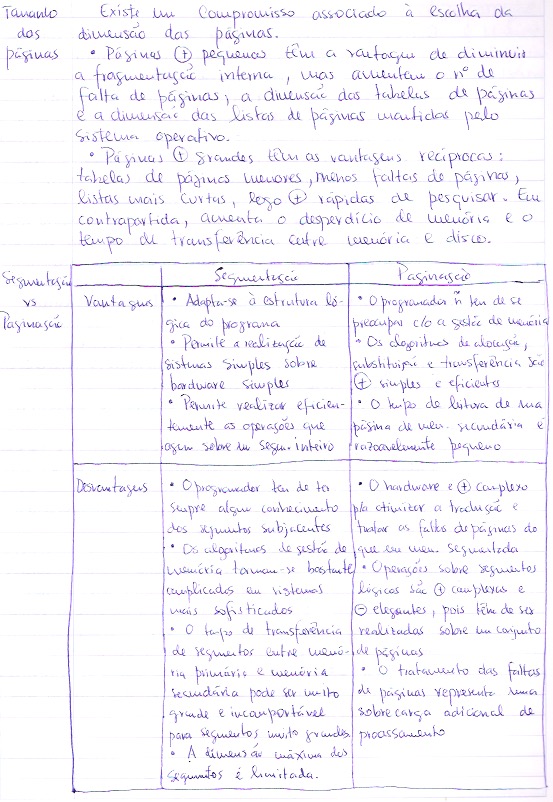 Tamanho dos páginas
Existe um compromisso associado à escolha da
dimensão das páginas.
• Páginas ⊕ pequenas têm a vantagem de diminuir
a fragmentação interna, mas aumentam o nº de
falta de páginas; a dimensão das tabelas de páginas
e a dimensão das listas de páginas mantidas pelo
sistema operativo.
• Páginas ⊕ grandes têm as vantagens recíprocas:
tabelas de páginas menores, menos faltas de páginas,
listas mais curtas, logo ⊕ rápidas de pesquisar. Em
contrapartida, aumenta o desperdício de memória e o
tempo de transferência entre memória e disco.
Segmentação
vs
Paginação
Segmentação
Paginação
Vantagens
• Adapta-se à estrutura ló-
gica do programa
• Permite a realização de
sistemas simples sobre
hardware simples
• Permite realizar eficien-
temente as operações que
agem sobre um segm. inteiro
• O programador ñ tem de se
preocupar c/o a gestão de memória
• Os algoritmos de alocação,
substituição e transferência são
⊕ simples e eficientes
• O tempo de leitura de uma
página de mem. secundária é
razoavelmente pequeno
Desvantagens
• O programador tem de ter
sempre algum conhecimento
dos segmentos subjacentes
• Os algoritmos de gestão de
memória tornam-se bastante
complicados em sistemas
mais sofisticados
• O tempo de transferência
de segmentos entre memó-
ria primária e memória
secundária pode ser muito
grande e incomportável
para segmentos muito grandes
• A dimensão máxima dos
segmentos é limitada.
• O hardware é ⊕ complexo
p/a otimizar a tradução e
tratar as faltas de páginas do
que em mem. segmentada
• Operações sobre segmentos
lógicos são ⊕ complexas e
⊖ elegantes, pois têm de ser
realizadas sobre um conjunto
de páginas
• O tratamento das faltas
de páginas representa uma
sobrecarga adicional de
processamento